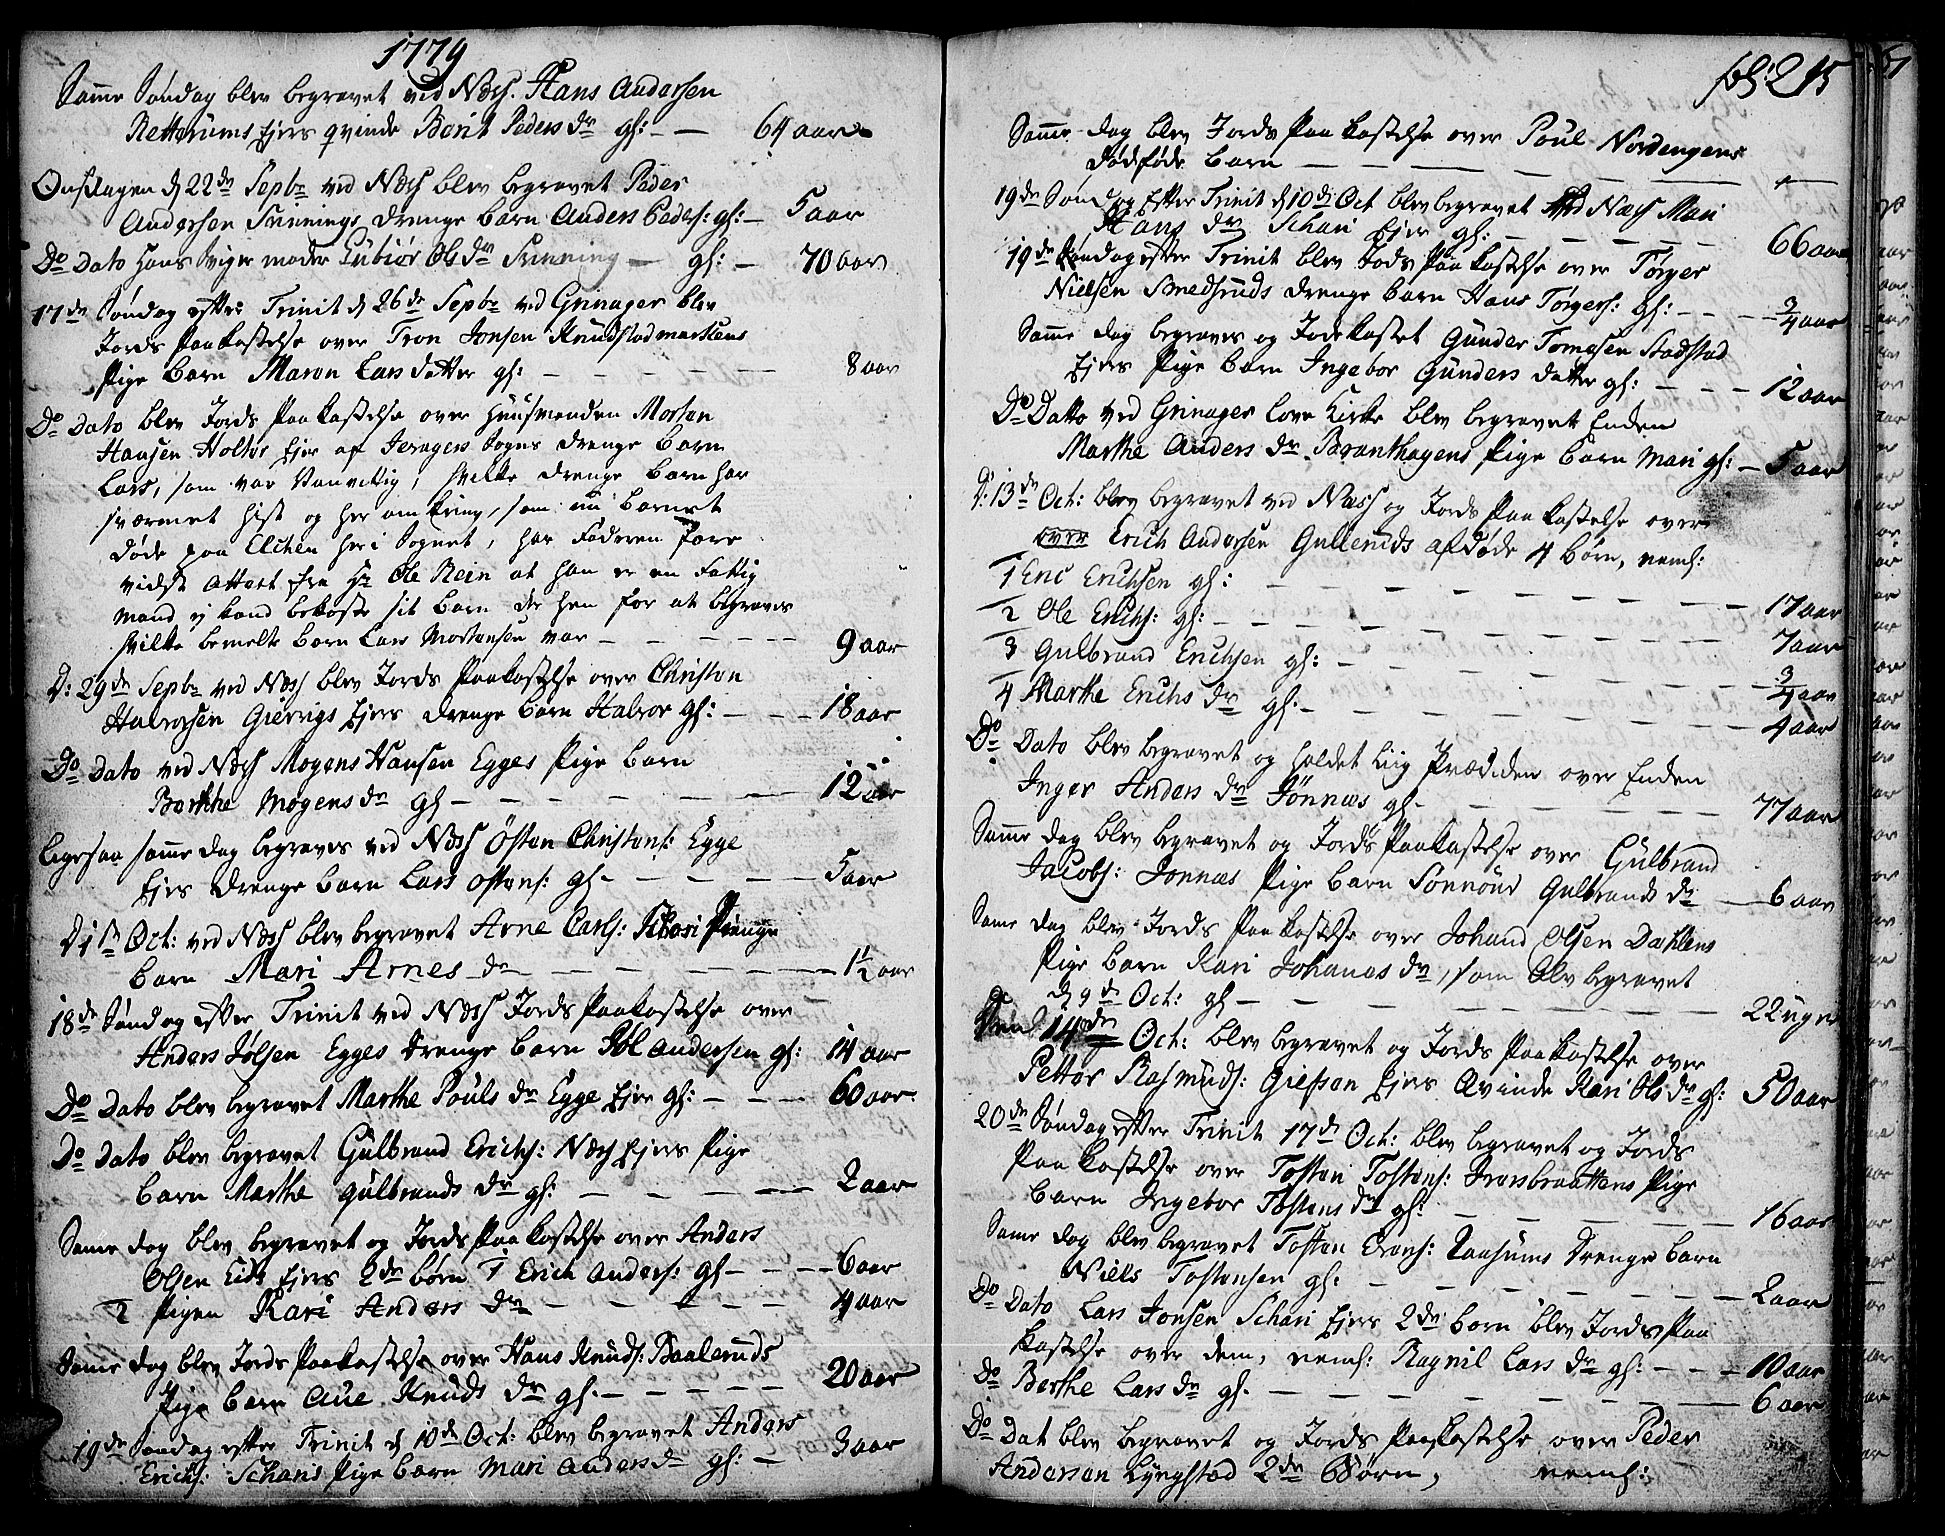 1779
Samme Søndag blev begravet ved Næss. Hans Andersen
Retterums Ejers qvinde Berit Peders dr gl: — — 64 aar
Onsdagen d 22de Septr ved Næss blev begravet Peder
Andersen Svinnings drenge barn Anders Peders: gl: — 5 aar
Do Dato Hans Sviger moder Gubiør Ols dr Svinning — gl: — 70 aar
17de Søndag efter Trinit d 26de Septr ved Grinager blev
Jords Paakastelse over Tron Jonsen Knudstadmarkens
Pige barn Maren Lars datter gl: — — — — — 8 aar
Do Dato blev Jords Paakastelse over Huusmanden Morten
Hansen Holtes Ejer af Jevagers Sogns drenge barn
Lars, som var Vanvittig, hvilke drenge barn har
sværmet hist og her omkring, som nu barnet
døde paa Elchen her i Sognet, har Faderen fore
vidst Attest fra Hr Ole Rein at han er en Fattig
mand ej kand bekoste sit barn der hen for at begraves
hvilke bemelte barn Lars Mortensen var — — — — — 9 aar
D: 29de Septr ved Næss blev Jords Paakastelse over Christen
Halvorsen Gierrigs Ejers drenge barn Halvor gl: — — — 18 aar
Do Dato ved Næss Mogens Hansen Egges Pige barn
Berthe Mogens dr gl — — — — — — 12 aar
Ligesaa samme dag begraves ved Næss Østen Christens: Egge
Ejers drenge barn Lars Østens: gl. — — — — 5 aar
D 1ste Oct: ved Næss blev begravet Arne Carls: Schari Pige
barn Mari Arnes dr — — — — — — 1½ aar
18de Søndag efter Trinit ved Næss Jords Paakastelse over
Anders Joelsen Egges drenge barn Joel Andersen gl: 14 aar
Do Dato blev begravet Marthe Pouls dr Egge Ejer gl: — — — 60 aar
Do Dato blev begravet Gulbrand Erichs: Næss Ejers Pige
barn Marthe Gulbrands dr gl: — — — — — 2 aar
Samme dag blev begravet og Jords Paakastelse over Anders
Olsen Eids Ejers 2de børn 1 Erich Anders: gl — — — 6 aar
2 Pigen Kari Anders dr — — — — — 4 aar
Samme dag blev Jords Paakastelse over Hans Knuds: Baaleruds
Pige barn Ane Knuds dr gl. — — — — — 20 aar
19de Søndag efter Trinit d 10de Oct: blev begravet Anders
Erichs: Scharis Pige barn Mari Anders dr gl: — 3 aar
fol: 215
Samme dag blev Jords Paakastelse over Poul Nordengens
dødføde barn — — — — — — —
19de Søndag Efter Trinit d 10de Oct blev begravet ved Næss Mari
Hans dr Schari Ejer gl: — — — — — 66 aar
19de Søndag efter Trinit blev Jords Paakastelse over Tørger
Nielsen Smedsruds drenge barn Hans Tørgers: gl: — — — ¾ aar
Samme dag begraves og Jordkastet Gunder Tomesen Stadstad
Ejers Pige barn Ingebor Gunders datter gl: — — — 12 aar
Do Datto ved Grinager love Kirke blev begravet Enken
Marthe Anders dr Branthagens Pige barn Mari gl: — 5 aar
D: 13de Oct: blev begravet ved Næss og Jords Paakastelse over
over Erich Andersen Gulleruds afdøde 4 børn, neml:
1 Eric Erichsen gl: — — — — — — 17 aar
2 Ole Erichs: gl: — — — — — — 7 aar
3 Gulbrand Erichsen gl: — — — — — ¾ aar
4 Marthe Erichs dr gl: — — — — — 4 aar
Do Dato blev begravet og holdet Liig Prædiken over Enken
Inger Anders dr Jønnæs gl. — — — — — 77 aar
Samme dag blev begravet og Jords Paakastelse over Gulbrand
Jacobs: Jonnæs Pige barn Sonnoud Gulbrands dr — 6 aar
Samme dag blev Jords Paakastelse over Johand Olsen Dahlens
Pige barn Kari Johanes dr, som blev begravet
d 9de Oct: gl — — — — — — 22 uger
14de Oct: blev begravet og Jords Paakastelse over
Petter Rasmuds: Giefsen Ejers Qvinde Kari Ols dr gl: 50 aar
20de Søndag efter Trinit 17de Oct: blev begravet og Jords
Paakastelse over Tosten Tostens: Iversbraattens Pige
barn Ingebor Tostens dr gl: — — — — — 16 aar
Samme dag blev begravet Tosten Evens: Raasums drenge barn
Niels Tostensen gl: — — — — — — 2 aar
Do Dato Lars Jonsen Schari Ejers 2de børn blev Jords Paa
kastelse over dem, neml: Ragnil Lars dr gl: — — — 10 aar
Do Berthe Lars dr gl. — — — — — — 6 aar
Do Dat blev begravet og Jords Paakastelse over Peder
Andersen Lyngstad 2de Børn, neml: